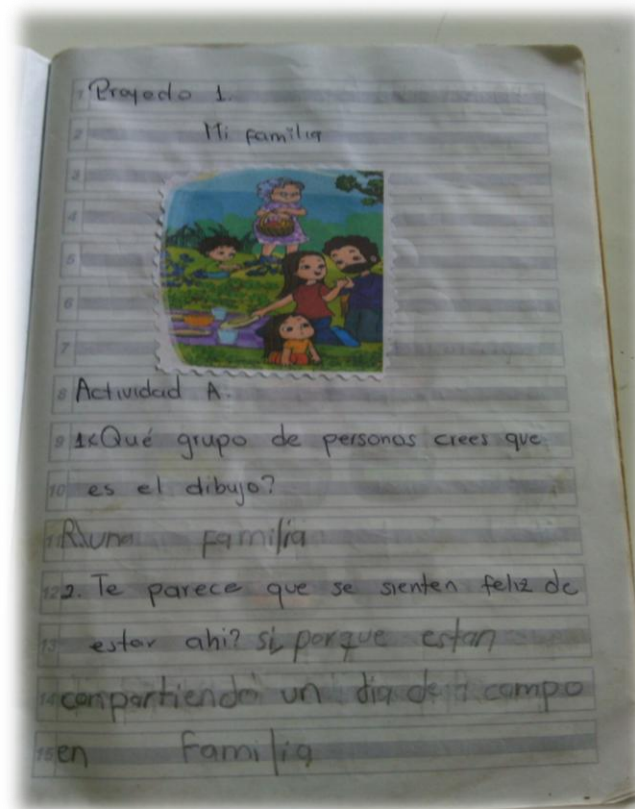 1 Proyecto 1.
2 Mi familia
3
4
5
6
7
8 Actividad A.
9 1¿Qué grupo de personas crees que
10 es el dibujo?
11 R/una familia
12 2. Te parece que se sienten feliz de
13 estar ahi? si porque estan
14 compartiendo un dia de campo
15 en familia